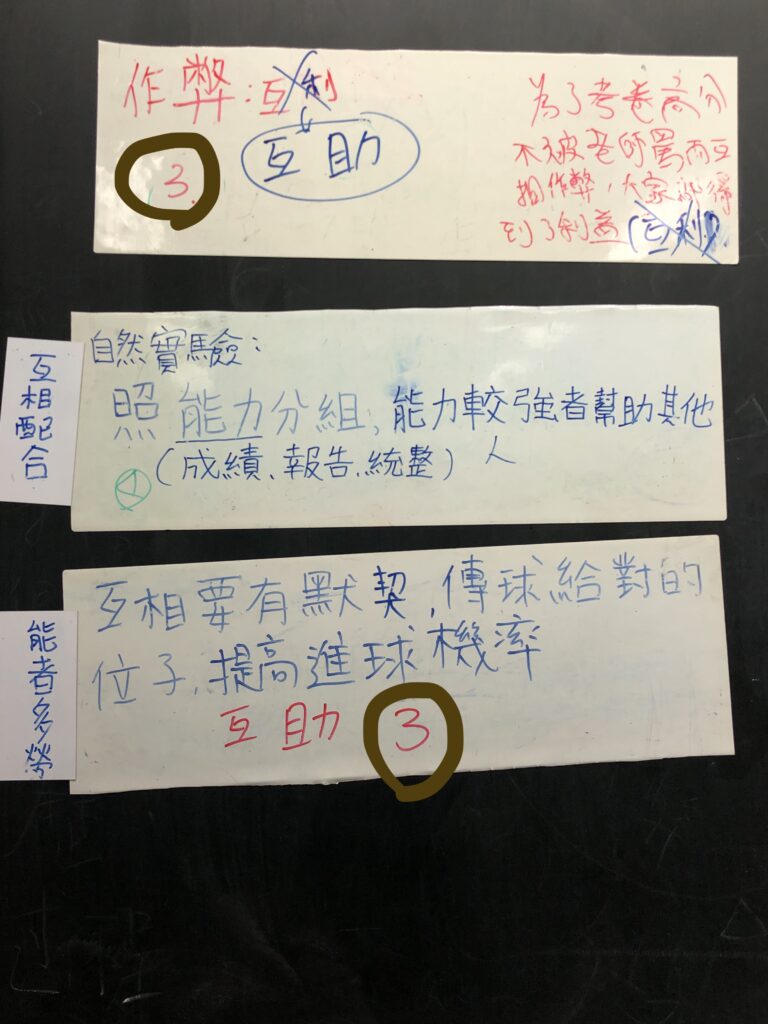 作弊:互利
互助
3.
為了考卷高分
不被老師罵而互
相作弊,大家都得
到了利益(互利).
互相配合
自然實驗:
照能力分組,能力較強者幫助其他
(成績、報告、統整)人
能者多勞
互相要有默契,傳球給對的
位子,提高進球機率
互助 3